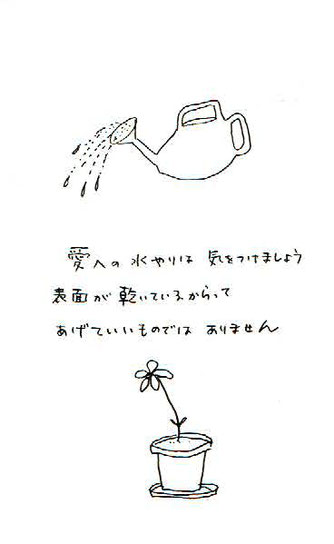 愛への 水やりは 気をつけましょう
表面が 乾いているからって
あげていいものでは ありません